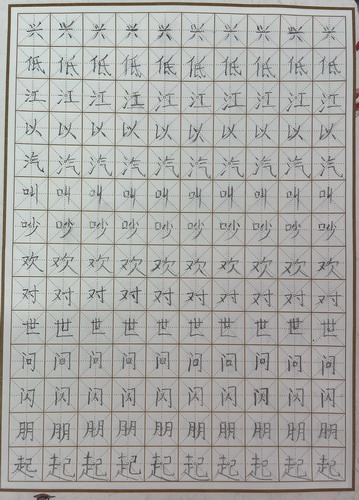 兴兴兴兴兴兴兴兴兴兴
低低低低低低低低低低
江江江江江江江江江江
以以以以以以以以以以
汽汽汽汽汽汽汽汽汽汽
叫叫叫叫叫叫叫叫叫叫
吵吵吵吵吵吵吵吵吵吵
欢欢欢欢欢欢欢欢欢欢
对对对对对对对对对对
世世世世世世世世世世
问问问问问问问问问问
闪闪闪闪闪闪闪闪闪闪
朋朋朋朋朋朋朋朋朋朋
起起起起起起起起起起